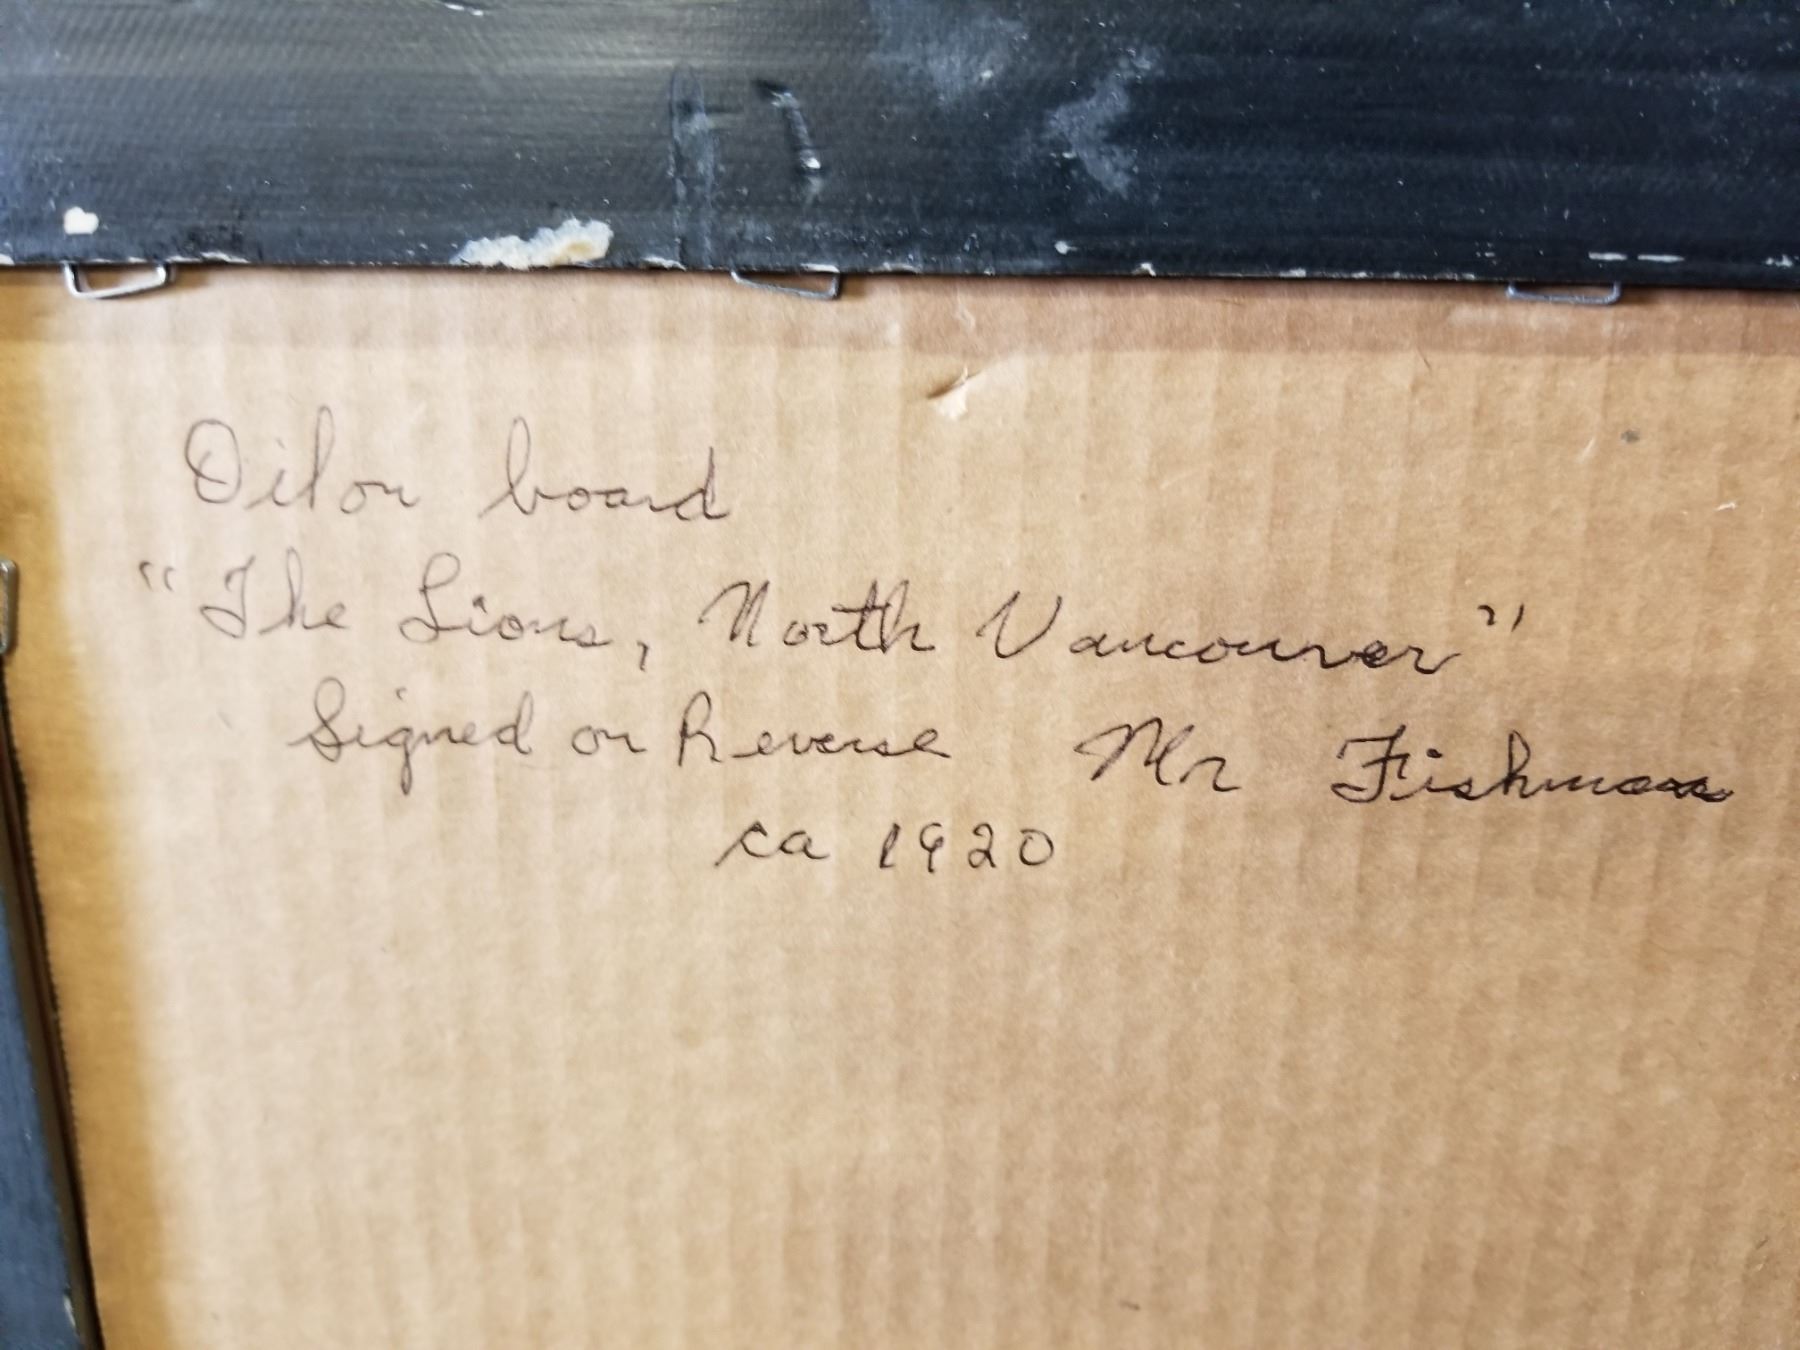 Oil on board
"The Lions, North Vancouver"
Signed on Reverse Mr Fishman
ca 1920